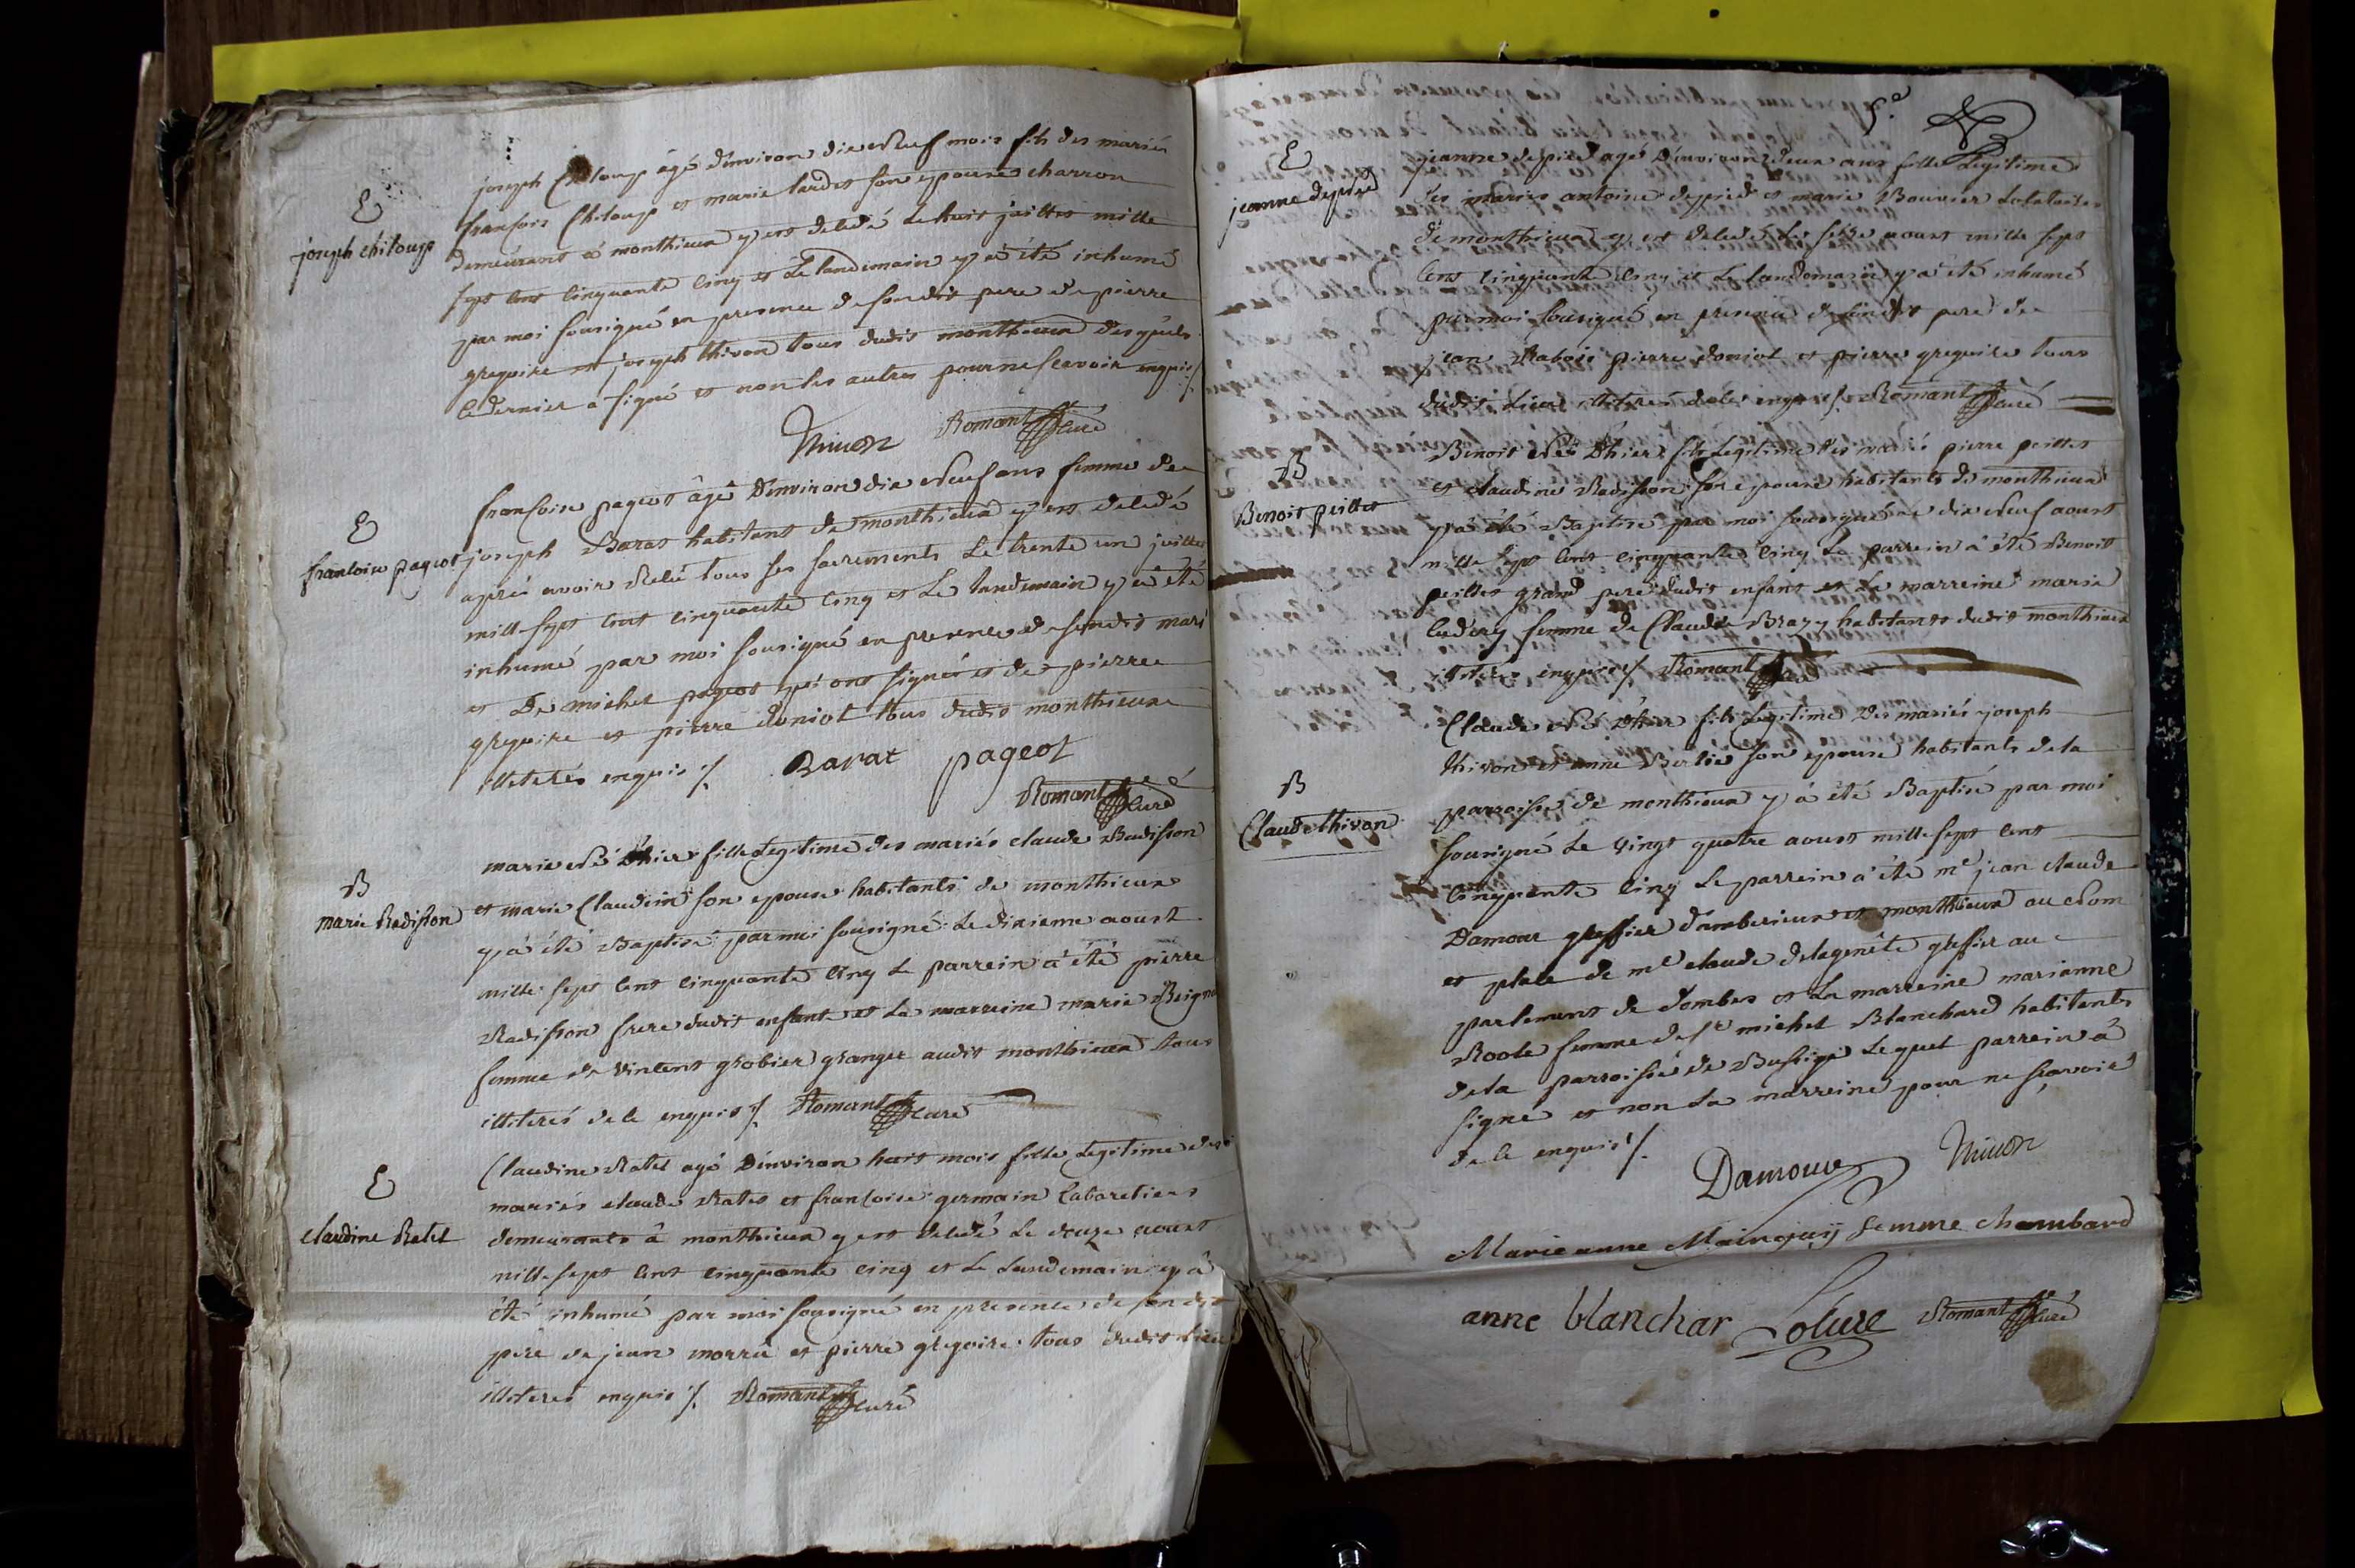 E
joseph chiloup
joseph Chiloup âgé d'environ dix neuf mois fils des mariés
francois Chiloup et marie lardet son epouse charron
demeurant à monthieux y est deledé le huit juillet mille
sept cent cinquante cinq et le landemain y a été inhumé
par moi sousigné en presence de son dit pere de pierre
gregoire et joseph thivon tous dudit monthieux desquels
le dernier a signé et non les autres pour ne scavoir enquis /.
thivon Romant curé
E
francoise pageot
francoise pageot âgé d'environ dix neuf ans femme de
joseph Barat habitant de monthieux y est deledé
aprés avoir Relu tous ses sacrements le trente un juillet
mille sept cent cinquante cinq et le landemain y a été
inhumé par moi sousigné en presence de son dit mari
et de michel pageot qui ont signés et de pierre
gregoire et pierre doniol tous dudit monthieux
illeterés enquis /. Barat pageot
Romant curé
B
marie Radisson
marie née d'hier fille legitime des mariés claude Radisson
et marie Claudin son epouse habitants de monthieux
y a été Baptisé par moi sousigné le dixieme aoust
mille sept cent cinquante cinq le parrein a été pierre
Radisson frere dudit enfant et la marreine marie
femme de vincent grobier granger audit monthieux tous
illiterés de le enquis /. Romant curé
E
claudine Ratel
Claudine Ratel agé d'environ huit mois fille legitime des
mariés claude Ratel et francoise germain Cabaretiers
demeurants à monthieux y est deledé le douze aoust
mille sept cent cinquante cinq et le landemain y a
été inhumé par moi sousigné en presence de son dit
pere de jean morrû et pierre gregoire tous dudit lieu
illiterés enquis /. Romant curé
5.e
E
jeanne depied
jeanne depied agé d'environ deux ans fille legitime
des mariés antoine depied et marie Bouvier
de monthieux y est deledé le seize aoust mille sept
cent cinquante cinq et le landemain y a été inhumé
par moi sousigné en presence de son dit pere de
jean Rabois pierre doniol et pierre gregoire tous
dudit lieu illiterés de le enquis /. Romant curé
B
Benoit peillet
Benoit né d'hier fils legitime des mariés pierre peillet
et claudine Radisson son epouse habitants de monthieux
y a été Baptisé par moi sousigné ce dix neuf aoust
mille sept cent cinquante cinq le parrein a été Benoit
peillet grand pere dudit enfant et la marreine marie
femme de Claude Brazy habitants dudit monthieux
illiterés enquis /. Romant curé
B
Claude thivon
Claude né d'hier fils legitime des mariés joseph
thivon et anne Berlie son epouse habitants de la
parroisse de monthieux y a été Baptisé par moi
sousigné le vingt quatre aoust mille sept cent
cinquante cinq le parrein a été me jean claude
Damour greffier d'amberieux et monthieux au nom
et place de me claude delagenête greffier au
parlement de dombes et la marreine marianne
Roole femme de sr michel Blanchard habitants
de la parroisse de Bussige lequel parrein à
signé et non la marreine pour ne scavoir
de le enquis /.
Damour thivon
Marie anne femme chambard
anne blanchar Romant curé